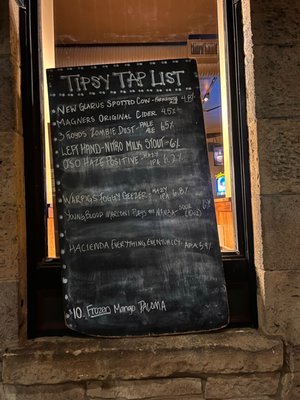 TIPSY TAP LIST
NEW GLARUS SPOTTED COW - 4.8%
MAGNERS ORIGINAL CIDER 4.5%
3 FLOYDS ZOMBIE DUST - PALE ALE 6.5%
LEFT HAND - NITRO MILK STOUT - 6%
OSO HAZE POSITIVE - HAZY IPA 6.2%
WARPIGS FOGGY GEEZER - HAZY IPA 6.8%
YOUNG BLOOD SOUR
HACIENDA EVERYTHING EVENTUALLY - APA 5.9%
10. Frozen Mango